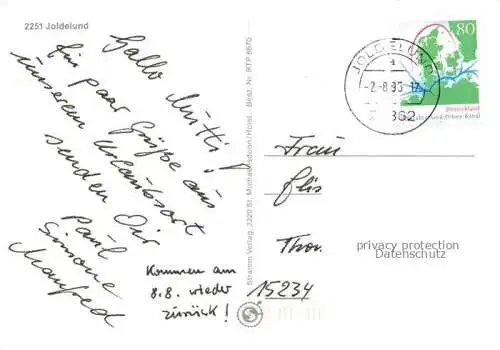 2251 Joldelund
Hallo Mutti!
Ein paar Grüße aus
unserem Urlaubsort
senden Dir
Paul
Simone
Manfred
Kommen am
8.8. wieder
zurück!
Stramm Verlag, 2220 St. Michaelisdonn/Holst.
Best. Nr. RTP 8670
80
Deutschland
Nord-Ostsee-Kanal
JOLDELUND
a
-2.-8.95-17
862
Frau
Elis
Thor
15234
privacy protection
Datenschutz